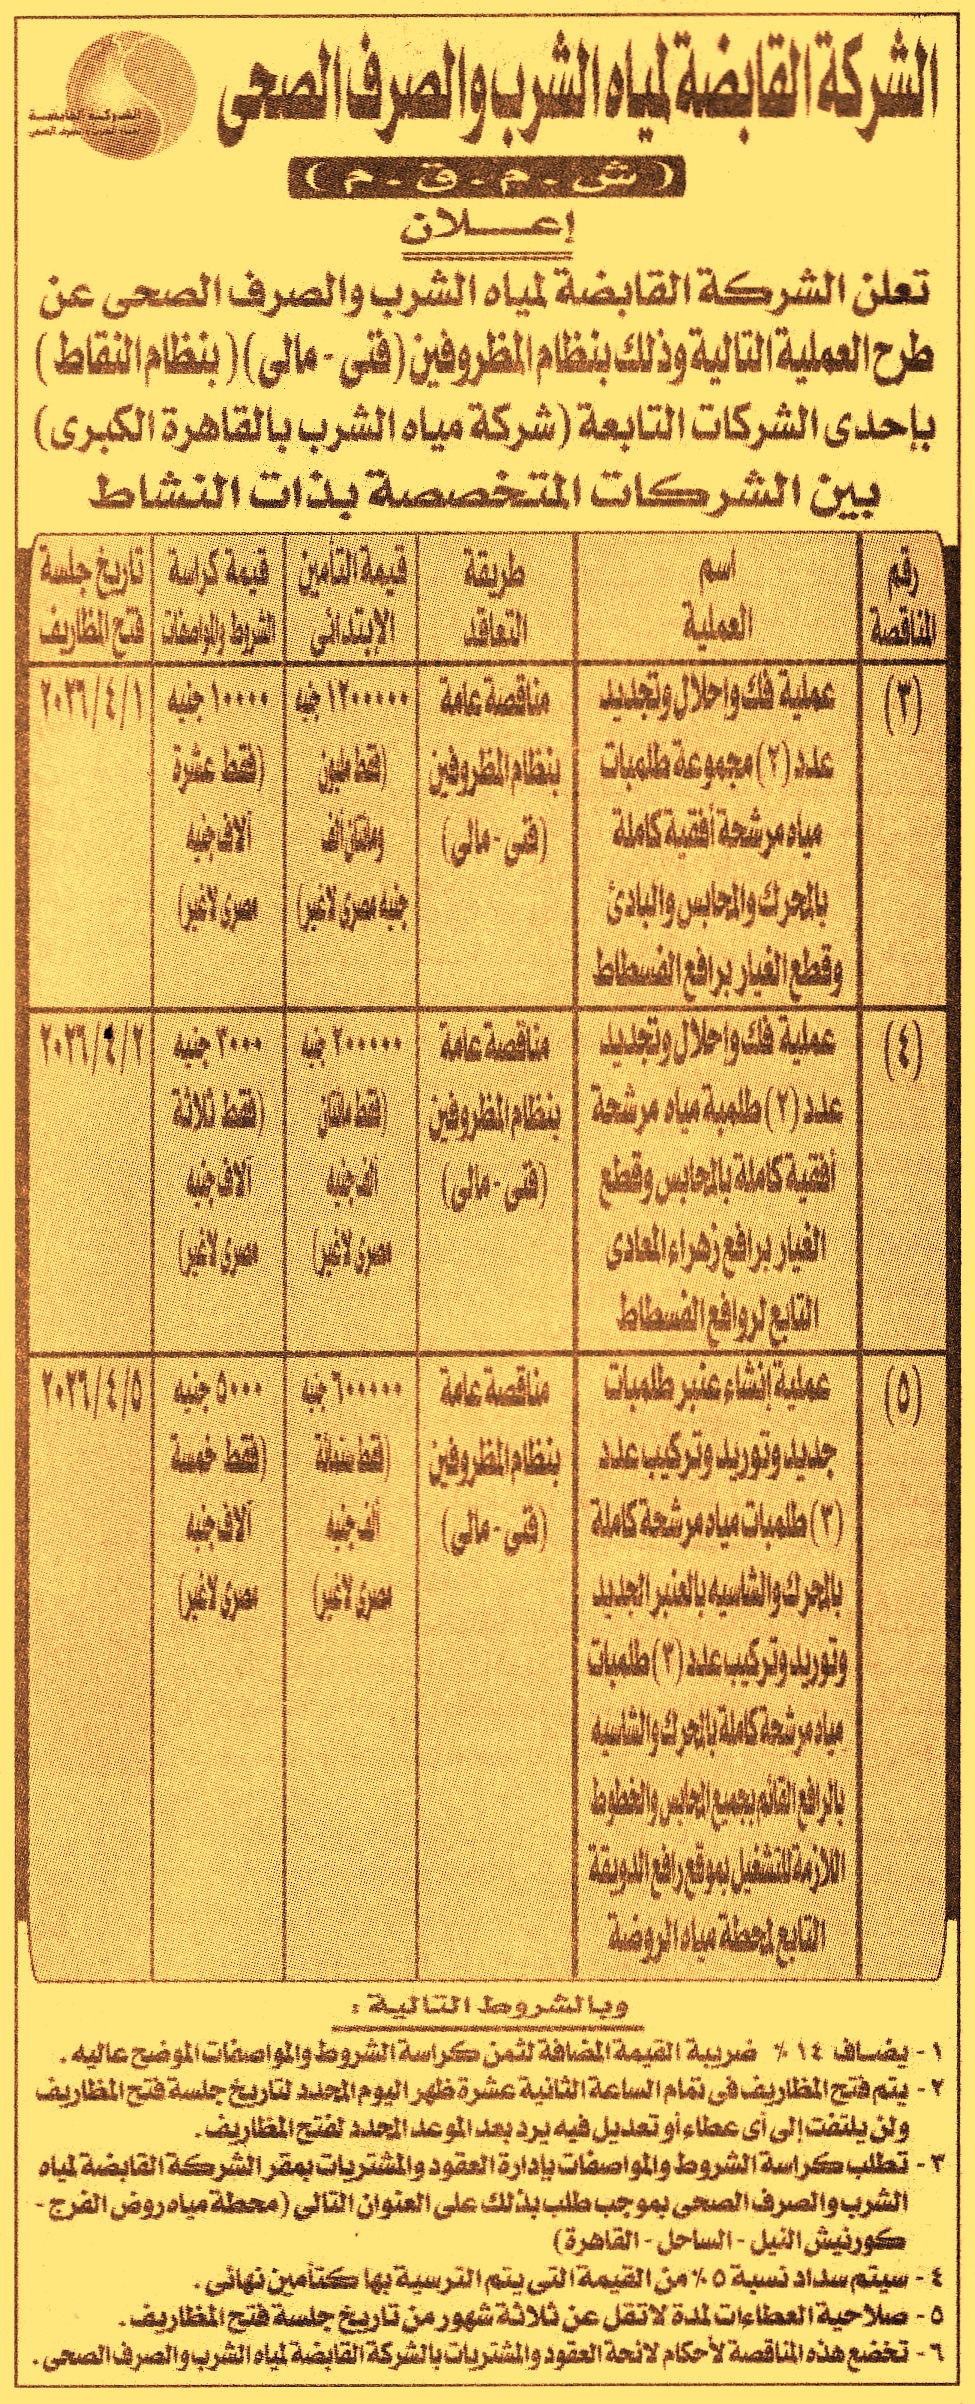 الشركة القابضة لمياه الشرب والصرف الصحى
الشركة القابضة
لمياه الشرب والصرف الصحى
( ش - م - ق - م )
إعـــلان
تعلن الشركة القابضة لمياه الشرب والصرف الصحى عن
طرح العملية التالية وذلك بنظام المظروفين (فنى - مالى) ( بنظام النقاط )
بإحدى الشركات التابعة (شركة مياه الشرب بالقاهرة الكبرى)
بين الشركات المتخصصة بذات النشاط
رقم
المناقصة
اسم
العملية
طريقة
التعاقد
قيمة التأمين
الإبتدائى
قيمة كراسة
الشروط والمواصفات
تاريخ جلسة
فتح المظاريف
(٣)
عملية فك وإحلال وتجديد
عدد (٢) مجموعة طلمبات
مياه مرشحة أفقية كاملة
بالمحرك والمحابس والبادئ
وقطع الغيار برافع الفسطاط
مناقصة عامة
بنظام المظروفين
(فنى - مالى)
١٢٠٠٠٠٠ جنيه
(فقط مليون
ومائتان ألف
جنيه مصرى لاغير)
١٠٠٠٠ جنيه
(فقط عشرة
آلاف جنيه
مصرى لاغير)
٢٠٢٦/٤/١
(٤)
عملية فك وإحلال وتجديد
عدد (٢) طلمبة مياه مرشحة
أفقية كاملة بالمحابس وقطع
الغيار برافع زهراء المعادى
التابع لروافع الفسطاط
مناقصة عامة
بنظام المظروفين
(فنى - مالى)
٢٠٠٠٠٠ جنيه
(فقط مائتان
ألف جنيه
مصرى لاغير)
٣٠٠٠ جنيه
(فقط ثلاثة
آلاف جنيه
مصرى لاغير)
٢٠٢٦/٤/٢
(٥)
عملية إنشاء عنبر طلمبات
جديد وتوريد وتركيب عدد
(٣) طلمبات مياه مرشحة كاملة
بالمحرك والشاسيه بالعنبر الجديد
وتوريد وتركيب عدد (٣) طلمبات
مياه مرشحة كاملة بالمحرك والشاسيه
بالرافع القائم بجميع المحابس والخطوط
اللازمة للتشغيل بموقع رافع الدويقة
التابع لمحطة مياه الروضة
مناقصة عامة
بنظام المظروفين
(فنى - مالى)
٦٠٠٠٠٠ جنيه
(فقط ستمائة
ألف جنيه
مصرى لاغير)
٥٠٠٠ جنيه
(فقط خمسة
آلاف جنيه
مصرى لاغير)
٢٠٢٦/٤/٥
وبالشروط التالية :
١ - يضاف ١٤ % ضريبة القيمة المضافة لثمن كراسة الشروط والمواصفات الموضح عاليه .
٢ - يتم فتح المظاريف فى تمام الساعة الثانية عشرة ظهر اليوم المحدد لتاريخ جلسة فتح المظاريف
ولن يلتفت إلى أى عطاء أو تعديل فيه يرد بعد الموعد المحدد لفتح المظاريف .
٣ - تطلب كراسة الشروط والمواصفات بإدارة العقود والمشتريات بمقر الشركة القابضة لمياه
الشرب والصرف الصحى بموجب طلب بذلك على العنوان التالى (محطة مياه روض الفرج -
كورنيش النيل - الساحل - القاهرة)
٤ - سيتم سداد نسبة ٥% من القيمة التى يتم الترسية بها كتأمين نهائى .
٥ - صلاحية العطاءات لمدة لاتقل عن ثلاثة شهور من تاريخ جلسة فتح المظاريف .
٦ - تخضع هذه المناقصة لأحكام لائحة العقود والمشتريات بالشركة القابضة لمياه الشرب والصرف الصحى .